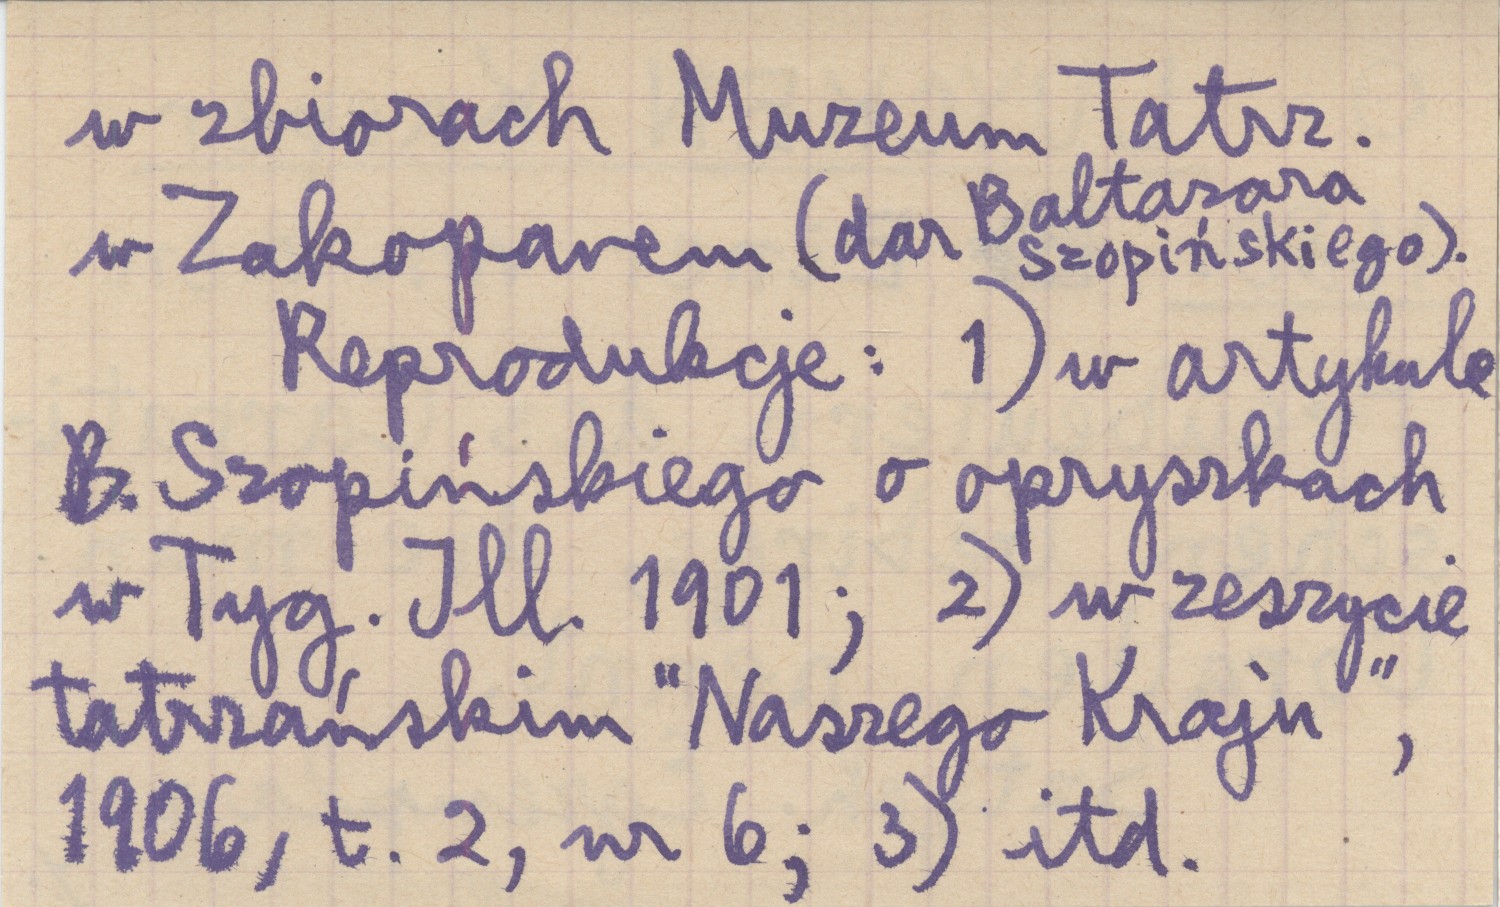 w zbiorach Muzeum Tatrz.
w Zakopanem (dar Baltazara
Szopińskiego).
Reprodukcje: 1) w artykule
B. Szopińskiego o opryszkach
w Tyg. Ill. 1901; 2) w zeszycie
tatrzańskim "Naszego Kraju",
1906, t. 2, nr 6; 3) itd.